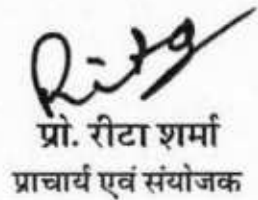 Rita
प्रो. रीटा शर्मा
प्राचार्य एवं संयोजक